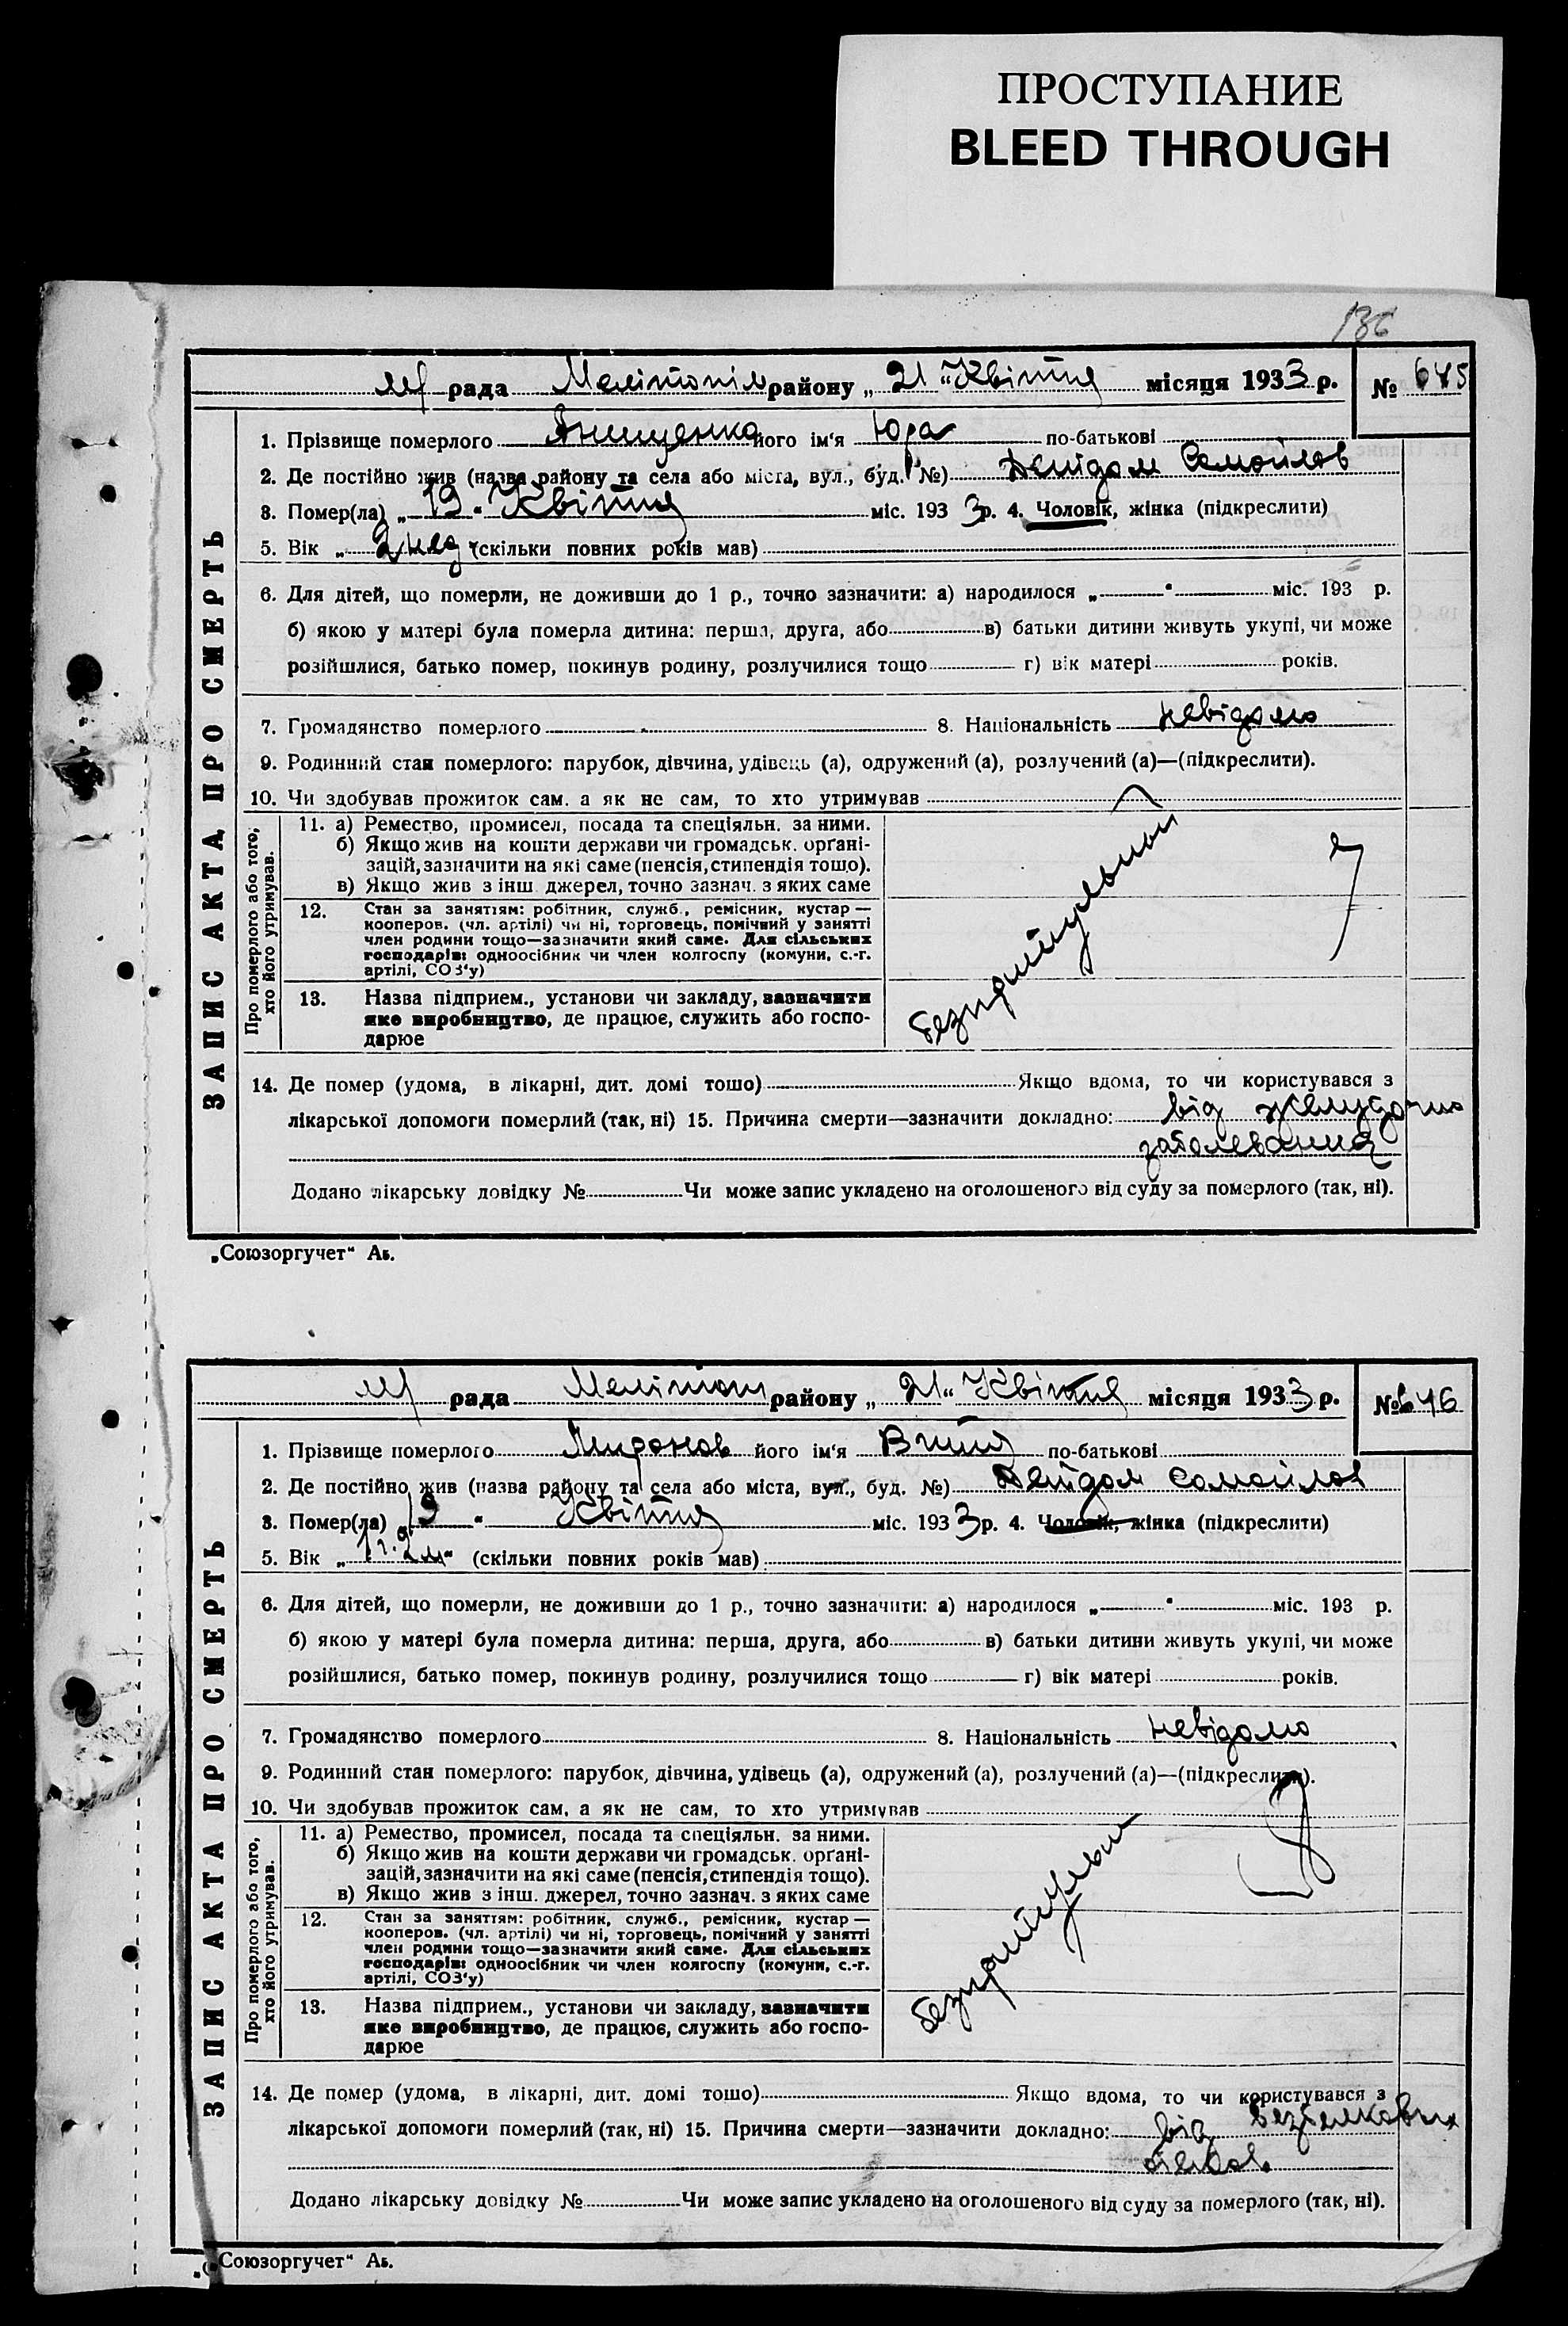 ПРОСТУПАНИЕ
BLEED THROUGH
186
рада Мелітопілм району „21“ Квітня місяця 1933 р. № 645
ЗАПИС АКТА ПРО СМЕРТЬ
1. Прізвище померлого Анищенко його ім'я Юра по-батькові
2. Де постійно жив (назва району та села або міста, вул., буд. №) Детдом Самойлов
3. Помер(ла) „19“ Квітня міс. 1933 р. 4. Чоловік, жінка (підкреслити)
5. Вік „2 нед“ (скільки повних років мав)
6. Для дітей, що померли, не доживши до 1 р., точно зазначити: а) народилося „ “ міс. 193 р.
б) якою у матері була померла дитина: перша, друга, або в) батьки дитини живуть укупі, чи може
розійшлися, батько помер, покинув родину, розлучилися тощо г) вік матері років.
7. Громадянство померлого 8. Національність невідомо
9. Родинний стан померлого: парубок, дівчина, удівець (а), одружений (а), розлучений (а)—(підкреслити).
10. Чи здобував прожиток сам, а як не сам, то хто утримував
Про померлого або того, хто його утримував.
11. а) Ремество, промисел, посада та спеціяльн. за ними.
б) Якщо жив на кошти держави чи громадськ. органі-
зацій, зазначити на які саме (пенсія, стипендія тощо).
в) Якщо жив з інш. джерел, точно зазнач. з яких саме
12. Стан за заняттям: робітник, служб., ремісник, кустар —
кооперов. (чл. артілі) чи ні, торговець, помічний у занятті
член родини тощо—зазначити який саме. Для сільських
господарів: одноосібник чи член колгоспу (комуни, с.-г.
артілі, СОЗ'у)
13. Назва підприєм., установи чи закладу, зазначити
яке виробництво, де працює, служить або госпо-
дарюе
безпритульный
14. Де помер (удома, в лікарні, дит. домі тощо) Якщо вдома, то чи користувався з
лікарської допомоги померлий (так, ні) 15. Причина смерти—зазначити докладно: від желудочно
заболевания
Додано лікарську довідку № Чи може запис укладено на оголошеного від суду за померлого (так, ні).
„Союзоргучет“ Аь.
рада Мелітоп району „21“ Квітня місяця 1933 р. № 646
ЗАПИС АКТА ПРО СМЕРТЬ
1. Прізвище померлого Миронов його ім'я Витя по-батькові
2. Де постійно жив (назва району та села або міста, вул., буд. №) Детдом Самойлов
3. Помер(ла) 19 “ Квітня міс. 1933 р. 4. Чоловік, жінка (підкреслити)
5. Вік „1 г. 2 м“ (скільки повних років мав)
6. Для дітей, що померли, не доживши до 1 р., точно зазначити: а) народилося „ “ міс. 193 р.
б) якою у матері була померла дитина: перша, друга, або в) батьки дитини живуть укупі, чи може
розійшлися, батько помер, покинув родину, розлучилися тощо г) вік матері років.
7. Громадянство померлого 8. Національність невідомо
9. Родинний стан померлого: парубок, дівчина, удівець (а), одружений (а), розлучений (а)—(підкреслити).
10. Чи здобував прожиток сам, а як не сам, то хто утримував
Про померлого або того, хто його утримував.
11. а) Ремество, промисел, посада та спеціяльн. за ними.
б) Якщо жив на кошти держави чи громадськ. органі-
зацій, зазначити на які саме (пенсія, стипендія тощо).
в) Якщо жив з інш. джерел, точно зазнач. з яких саме
12. Стан за заняттям: робітник, служб., ремісник, кустар —
кооперов. (чл. артілі) чи ні, торговець, помічний у занятті
член родини тощо—зазначити який саме. Для сільських
господарів: одноосібник чи член колгоспу (комуни, с.-г.
артілі, СОЗ'у)
13. Назва підприєм., установи чи закладу, зазначити
яке виробництво, де працює, служить або госпо-
дарюе
безпритульн
14. Де помер (удома, в лікарні, дит. домі тощо) Якщо вдома, то чи користувався з
лікарської допомоги померлий (так, ні) 15. Причина смерти—зазначити докладно: від безбелкових
отеков
Додано лікарську довідку № Чи може запис укладено на оголошеного від суду за померлого (так, ні).
„Союзоргучет“ Аь.